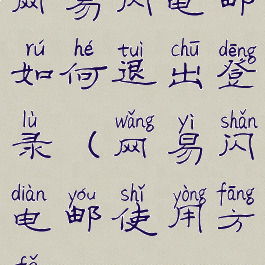 网易闪电邮
rú hé tuì chū dēng
如何退出登
lù wǎng yì shǎn
录（网易闪
diàn yóu shǐ yòng fāng
电邮使用方
fǎ